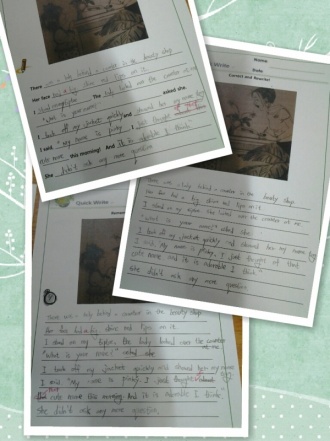 There was a lady behind a counter in the beauty shop.
Her face had a big, shine red lips on it.
I stood on my tiptoe. The lady looked over the counter at me.
"What is your name?" asked she.
I took off my jackets quickly and showed her my name tag.
I said "My name is pinky. I just thought
cute name this morning! And it's adorable I think"
She didn't ask any more question.
Quick Write
Name
Date
Correct and Rewrite!
There was lady behind counter in the beauty shop.
Her face had a big, shine red lips on it.
I stood on my tiptoe. She looked over the counter at me.
"What is name?" asked she.
I took off my jackets quickly and showed her my name
I said "My name is pinky, I just thought of that
cute name and it is adorable I think"
She didn't ask any more question
Quick Write
There was lady behind counter in the beauty shop
Her face had a big, shine red lips on it.
I stood on my tiptoe, the lady looked over the counter
"What is your name?" asked she
I took off my jackets quickly and showed her my name
I said "My name is pinky. I just thought
that cute name this morning. And it is adorable I think.
She didn't ask any more question.